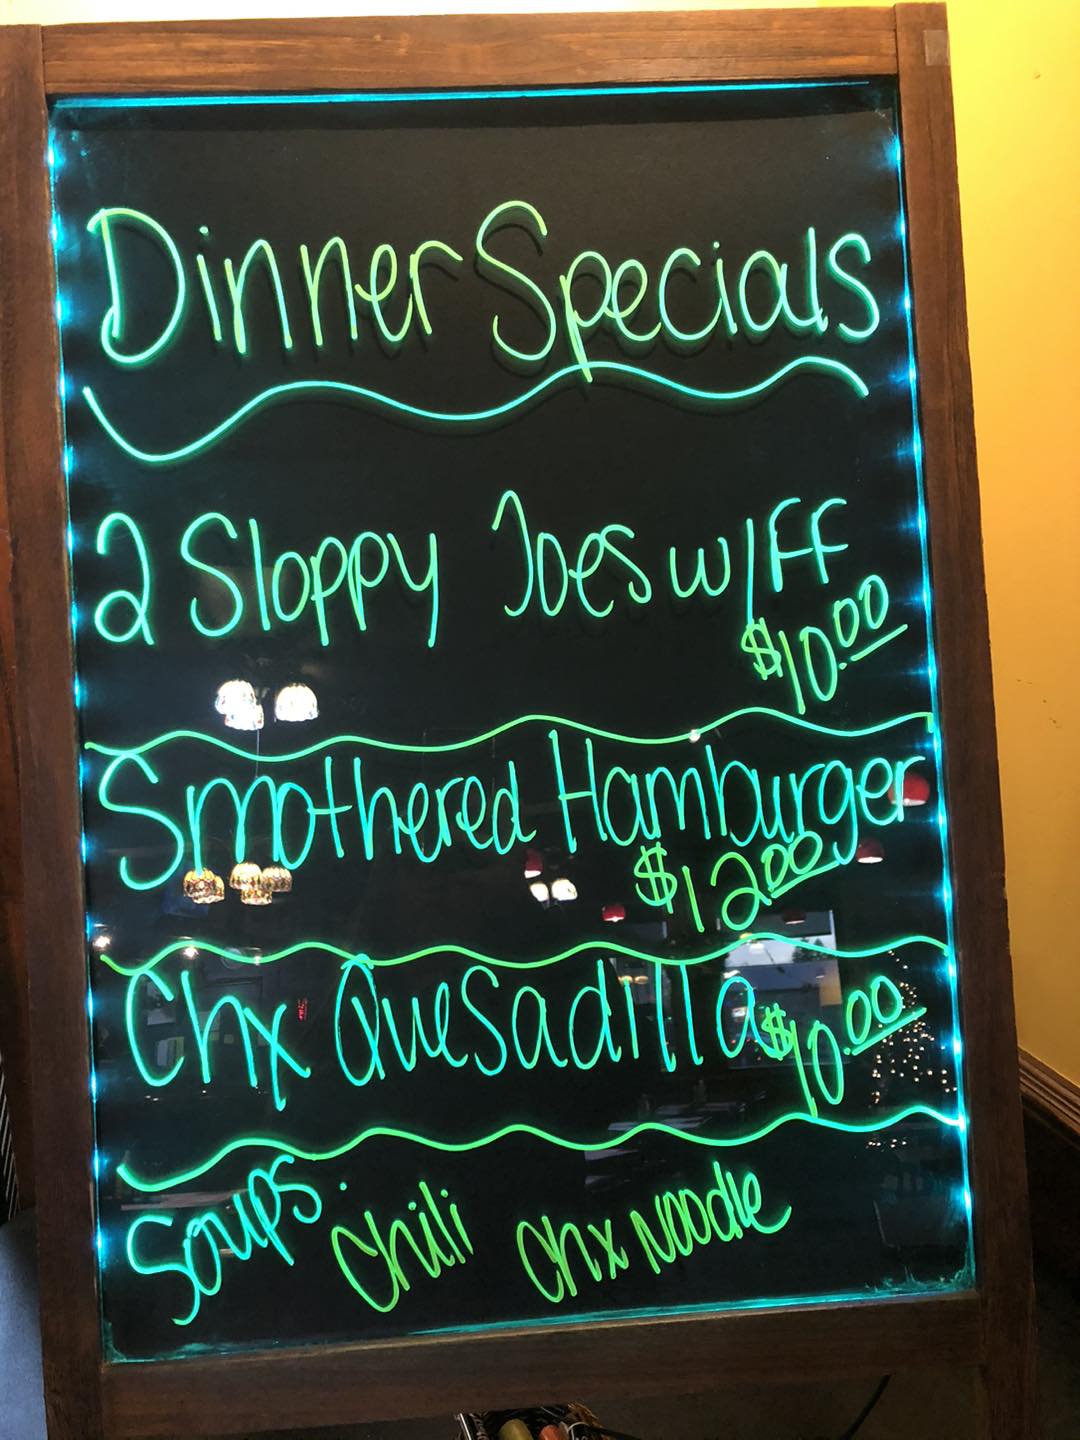 Dinner Specials
2 Sloppy Joes w/FF
$10.00
Smothered Hamburger
$12.00
Chx Quesadilla $10.00
Soups: Chili Chx Noodle